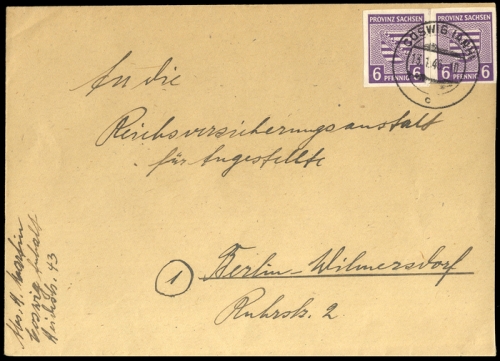 PROVINZ SACHSEN
6 PFENNIG 6
PROVINZ SACHSEN
6 PFENNIG 6
COSWIG (ANH)
c
An die
Reichsversicherungsanstalt
für Angestellte
1 Berlin-Wilmersdorf
Ruhrstr. 2
Abs. A. Martin
Coswig Anhalt
43